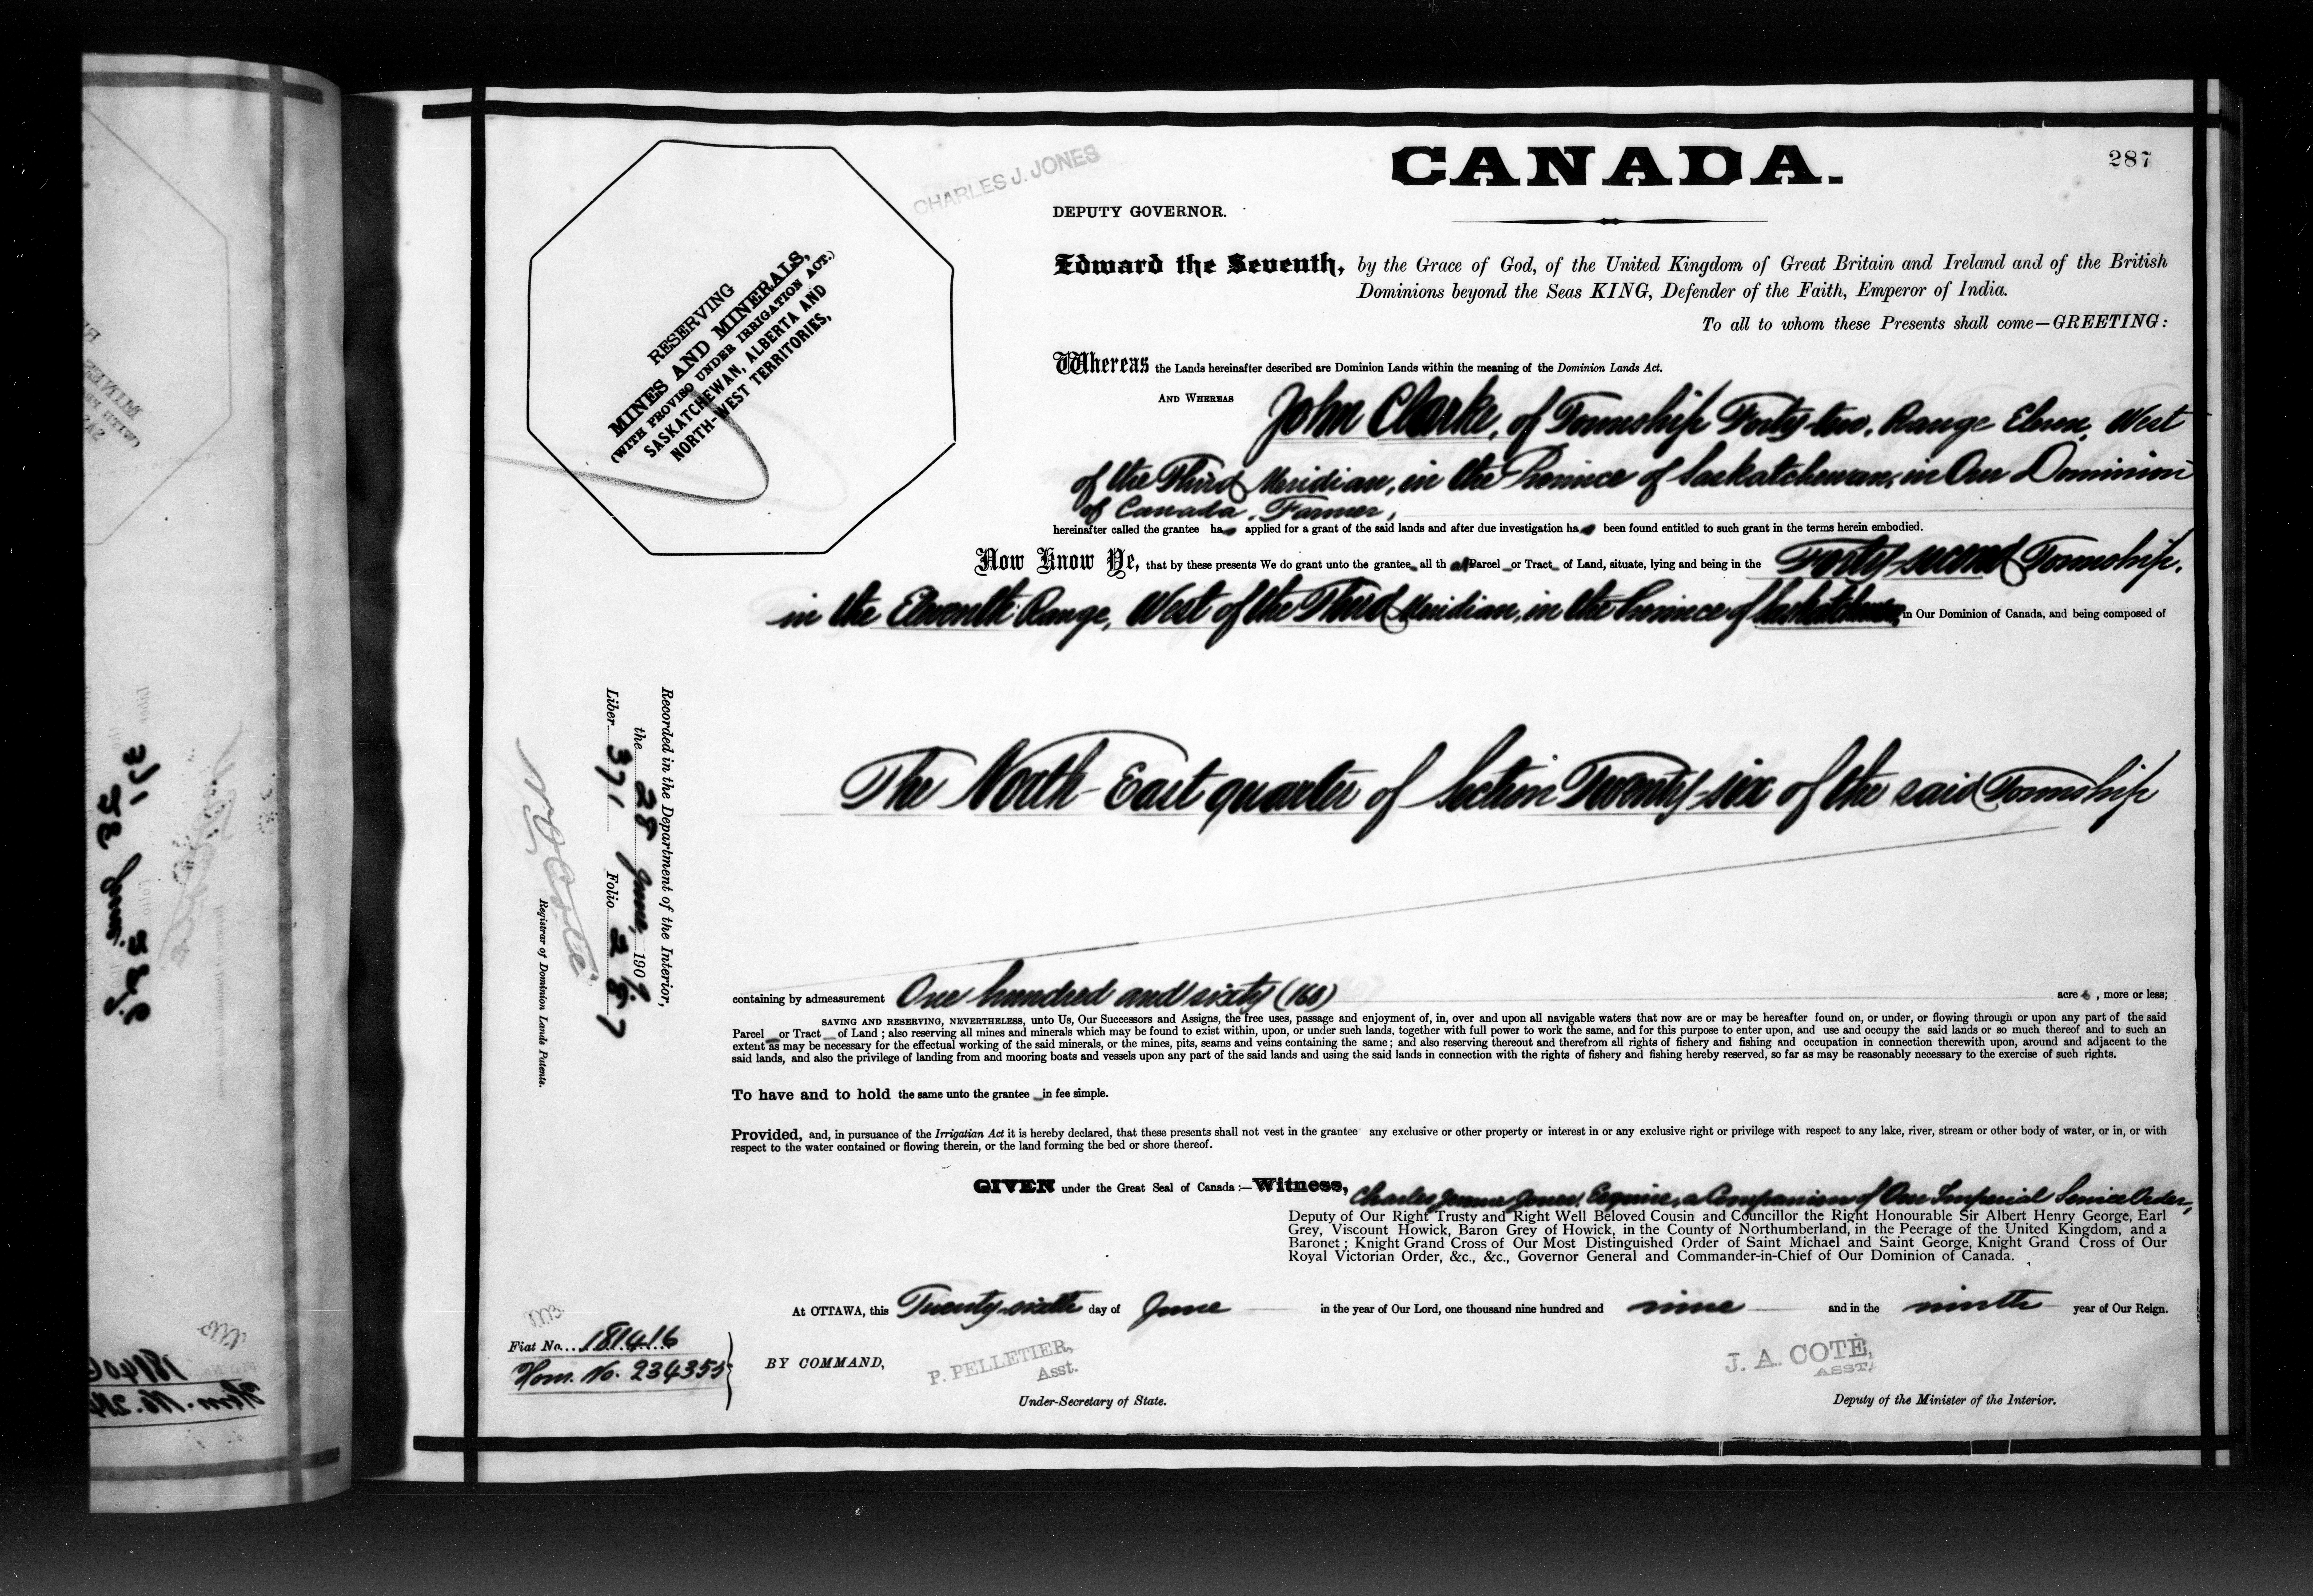 CANADA.
287
CHARLES J. JONES
DEPUTY GOVERNOR.
RESERVING
MINES AND MINERALS,
(WITH PROVISO UNDER IRRIGATION ACT.)
SASKATCHEWAN, ALBERTA AND
NORTH-WEST TERRITORIES,
Edward the Seventh, by the Grace of God, of the United Kingdom of Great Britain and Ireland and of the British
Dominions beyond the Seas KING, Defender of the Faith, Emperor of India.
To all to whom these Presents shall come—GREETING:
Whereas the Lands hereinafter described are Dominion Lands within the meaning of the Dominion Lands Act.
AND WHEREAS John Clarke, of Township Forty-two, Range Eleven, West
of the Third Meridian, in the Province of Saskatchewan, in Our Dominion
of Canada, Farmer,
hereinafter called the grantee has applied for a grant of the said lands and after due investigation has been found entitled to such grant in the terms herein embodied.
Now Know Ye, that by these presents We do grant unto the grantee all that Parcel or Tract of Land, situate, lying and being in the Forty-second Township,
in the Eleventh Range, West of the Third Meridian, in the Province of Saskatchewan, in Our Dominion of Canada, and being composed of
The North-East quarter of Section Twenty-six of the said Township
Recorded in the Department of the Interior,
the 28 June, 1909
Liber 371 Folio 287
N. O. Coté
Registrar of Dominion Lands Patents.
containing by admeasurement One hundred and sixty (160) acres, more or less;
SAVING AND RESERVING, NEVERTHELESS, unto Us, Our Successors and Assigns, the free uses, passage and enjoyment of, in, over and upon all navigable waters that now are or may be hereafter found on, or under, or flowing through or upon any part of the said
Parcel or Tract of Land; also reserving all mines and minerals which may be found to exist within, upon, or under such lands, together with full power to work the same, and for this purpose to enter upon, and use and occupy the said lands or so much thereof and to such an
extent as may be necessary for the effectual working of the said minerals, or the mines, pits, seams and veins containing the same; and also reserving thereout and therefrom all rights of fishery and fishing and occupation in connection therewith upon, around and adjacent to the
said lands, and also the privilege of landing from and mooring boats and vessels upon any part of the said lands and using the said lands in connection with the rights of fishery and fishing hereby reserved, so far as may be reasonably necessary to the exercise of such rights.
To have and to hold the same unto the grantee in fee simple.
Provided, and, in pursuance of the Irrigation Act it is hereby declared, that these presents shall not vest in the grantee any exclusive or other property or interest in or any exclusive right or privilege with respect to any lake, river, stream or other body of water, or in, or with
respect to the water contained or flowing therein, or the land forming the bed or shore thereof.
GIVEN under the Great Seal of Canada:—Witness, Charles Jerome Jones, Esquire, a Companion of Our Imperial Service Order,
Deputy of Our Right Trusty and Right Well Beloved Cousin and Councillor the Right Honourable Sir Albert Henry George, Earl
Grey, Viscount Howick, Baron Grey of Howick, in the County of Northumberland, in the Peerage of the United Kingdom, and a
Baronet; Knight Grand Cross of Our Most Distinguished Order of Saint Michael and Saint George, Knight Grand Cross of Our
Royal Victorian Order, &c., &c., Governor General and Commander-in-Chief of Our Dominion of Canada.
At OTTAWA, this Twenty-sixth day of June in the year of Our Lord, one thousand nine hundred and nine and in the ninth year of Our Reign.
Fiat No. 181416
Hom. No. 234355
BY COMMAND,
P. PELLETIER,
Asst.
Under-Secretary of State.
J. A. COTÉ,
ASST.
Deputy of the Minister of the Interior.